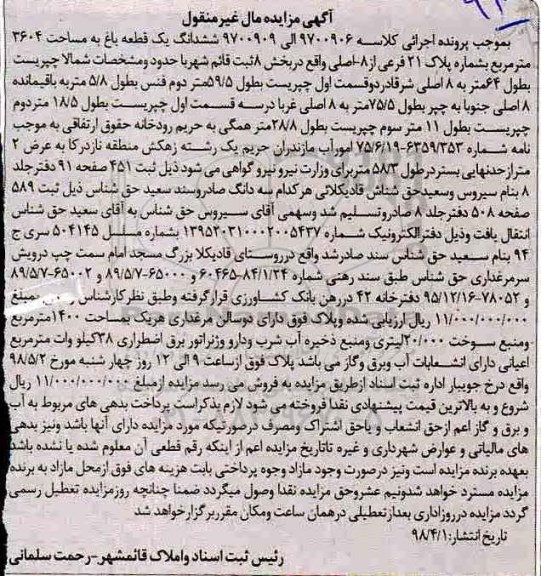 آگهی مزایده مال غیرمنقول
بموجب پرونده اجرائی کلاسه ۹۷۰۰۹۰۶ الی ۹۷۰۰۹۰۹ ششدانگ یک قطعه باغ به مساحت ۳۶۰۴
مترمربع بشماره پلاک ۲۱ فرعی از۸-اصلی واقع دربخش ۸ثبت قائم شهربا حدود ومشخصات شمالا چپریست
بطول ۶۴متر به ۸ اصلی شرقادردوقسمت اول چپریست بطول ۵۹/۵متر دوم فنس بطول ۵/۸ متربه باقیمانده
۸ اصلی جنوبا به چپر بطول ۷۵/۵متر به ۸ اصلی غربا درسه قسمت اول چپریست بطول ۱۸/۵ متردوم
چپریست بطول ۱۱ متر سوم چپریست بطول ۲۸/۸متر همگی به حریم رودخانه حقوق ارتفاقی به موجب
نامه شماره ۶۳۵۹/۳۵۳-۷۵/۶/۱۹ امورآب مازندران حریم یک رشته زهکش منطقه نازدرکا به عرض ۲
مترازحدنهایی بستردرطول ۵۸/۳ متربرای وزارت نیرو نیرو گواهی می شود ذیل ثبت ۴۵۱ صفحه ۹۱ دفترجلد
۸ بنام سیروس وسعیدحق شناش قادیکلائی هرکدام سه دانگ صادروسند سعید حق شناس ذیل ثبت ۵۸۹
صفحه ۵۰۸ دفترجلد ۸ صادروتسلیم شد وسهمی آقای سیروس حق شناس به آقای سعید حق شناس
انتقال یافت وذیل دفترالکترونیک شماره ۱۳۹۵۲۰۳۱۰۰۰۲۰۰۵۴۳۷ بشماره مسلسل ۵۰۴۱۴۵ سری ج
۹۴ بنام سعید حق شناس سند صادرشد واقع درروستای قادیکلا بزرگ مسجد امام سمت چپ درویش
سرمرغداری حق شناس طبق سند رهنی شماره ۸۴/۱/۲۴-۶۰۴۶۵ و ۶۵۰۰۰-۸۹/۵/۷ و ۶۵۰۰۲-۸۹/۵/۷
و ۷۸۰۵۲-۹۵/۱۲/۱۶ دفترخانه ۴۲ دررهن بانک کشاورزی قرارگرفته وطبق نظرکارشناس بمبلغ
۱۱/۰۰۰/۰۰۰/۰۰۰ ریال ارزیابی شده وپلاک فوق دارای دوسالن مرغداری هریک بمساحت ۱۴۰۰مترمربع
ومنبع سوخت ۲۰/۰۰۰لیتری ومنبع ذخیره آب شرب ودارو وژنراتور برق اضطراری ۳۸کیلو وات مترمربع
اعیانی دارای انشعابات آب وبرق وگاز می باشد پلاک فوق ازساعت ۹ الی ۱۲ روز چهار شنبه مورخ ۹۸/۵/۲
واقع درخ جویبار اداره ثبت اسناد ازطریق مزایده به فروش می رسد مزایده ازمبلغ ۱۱/۰۰۰/۰۰۰/۰۰۰ ریال
شروع و به بالاترین قیمت پیشنهادی نقدا فروخته می شود لازم بذکراست پرداخت بدهی های مربوط به آب
و برق و گاز اعم ازحق انشعاب و یاحق اشتراک ومصرف درصورتیکه مورد مزایده دارای آنها باشد ونیز بدهی
های مالیاتی و عوارض شهرداری و غیره تاتاریخ مزایده اعم از اینکه رقم قطعی آن معلوم شده یا نشده باشد
بعهده برنده مزایده است ونیز درصورت وجود مازاد وجوه پرداختی بابت هزینه های فوق ازمحل مازاد به برنده
مزایده مسترد خواهد شدونیم عشروحق مزایده نقدا وصول میگردد ضمنا چنانچه روزمزایده تعطیل رسمی
گردد مزایده درروزاداری بعدازتعطیلی درهمان ساعت ومکان مقرربرگزارخواهد شد
تاریخ انتشار:۹۸/۴/۱
رئیس ثبت اسناد واملاک قائمشهر-رحمت سلمانی